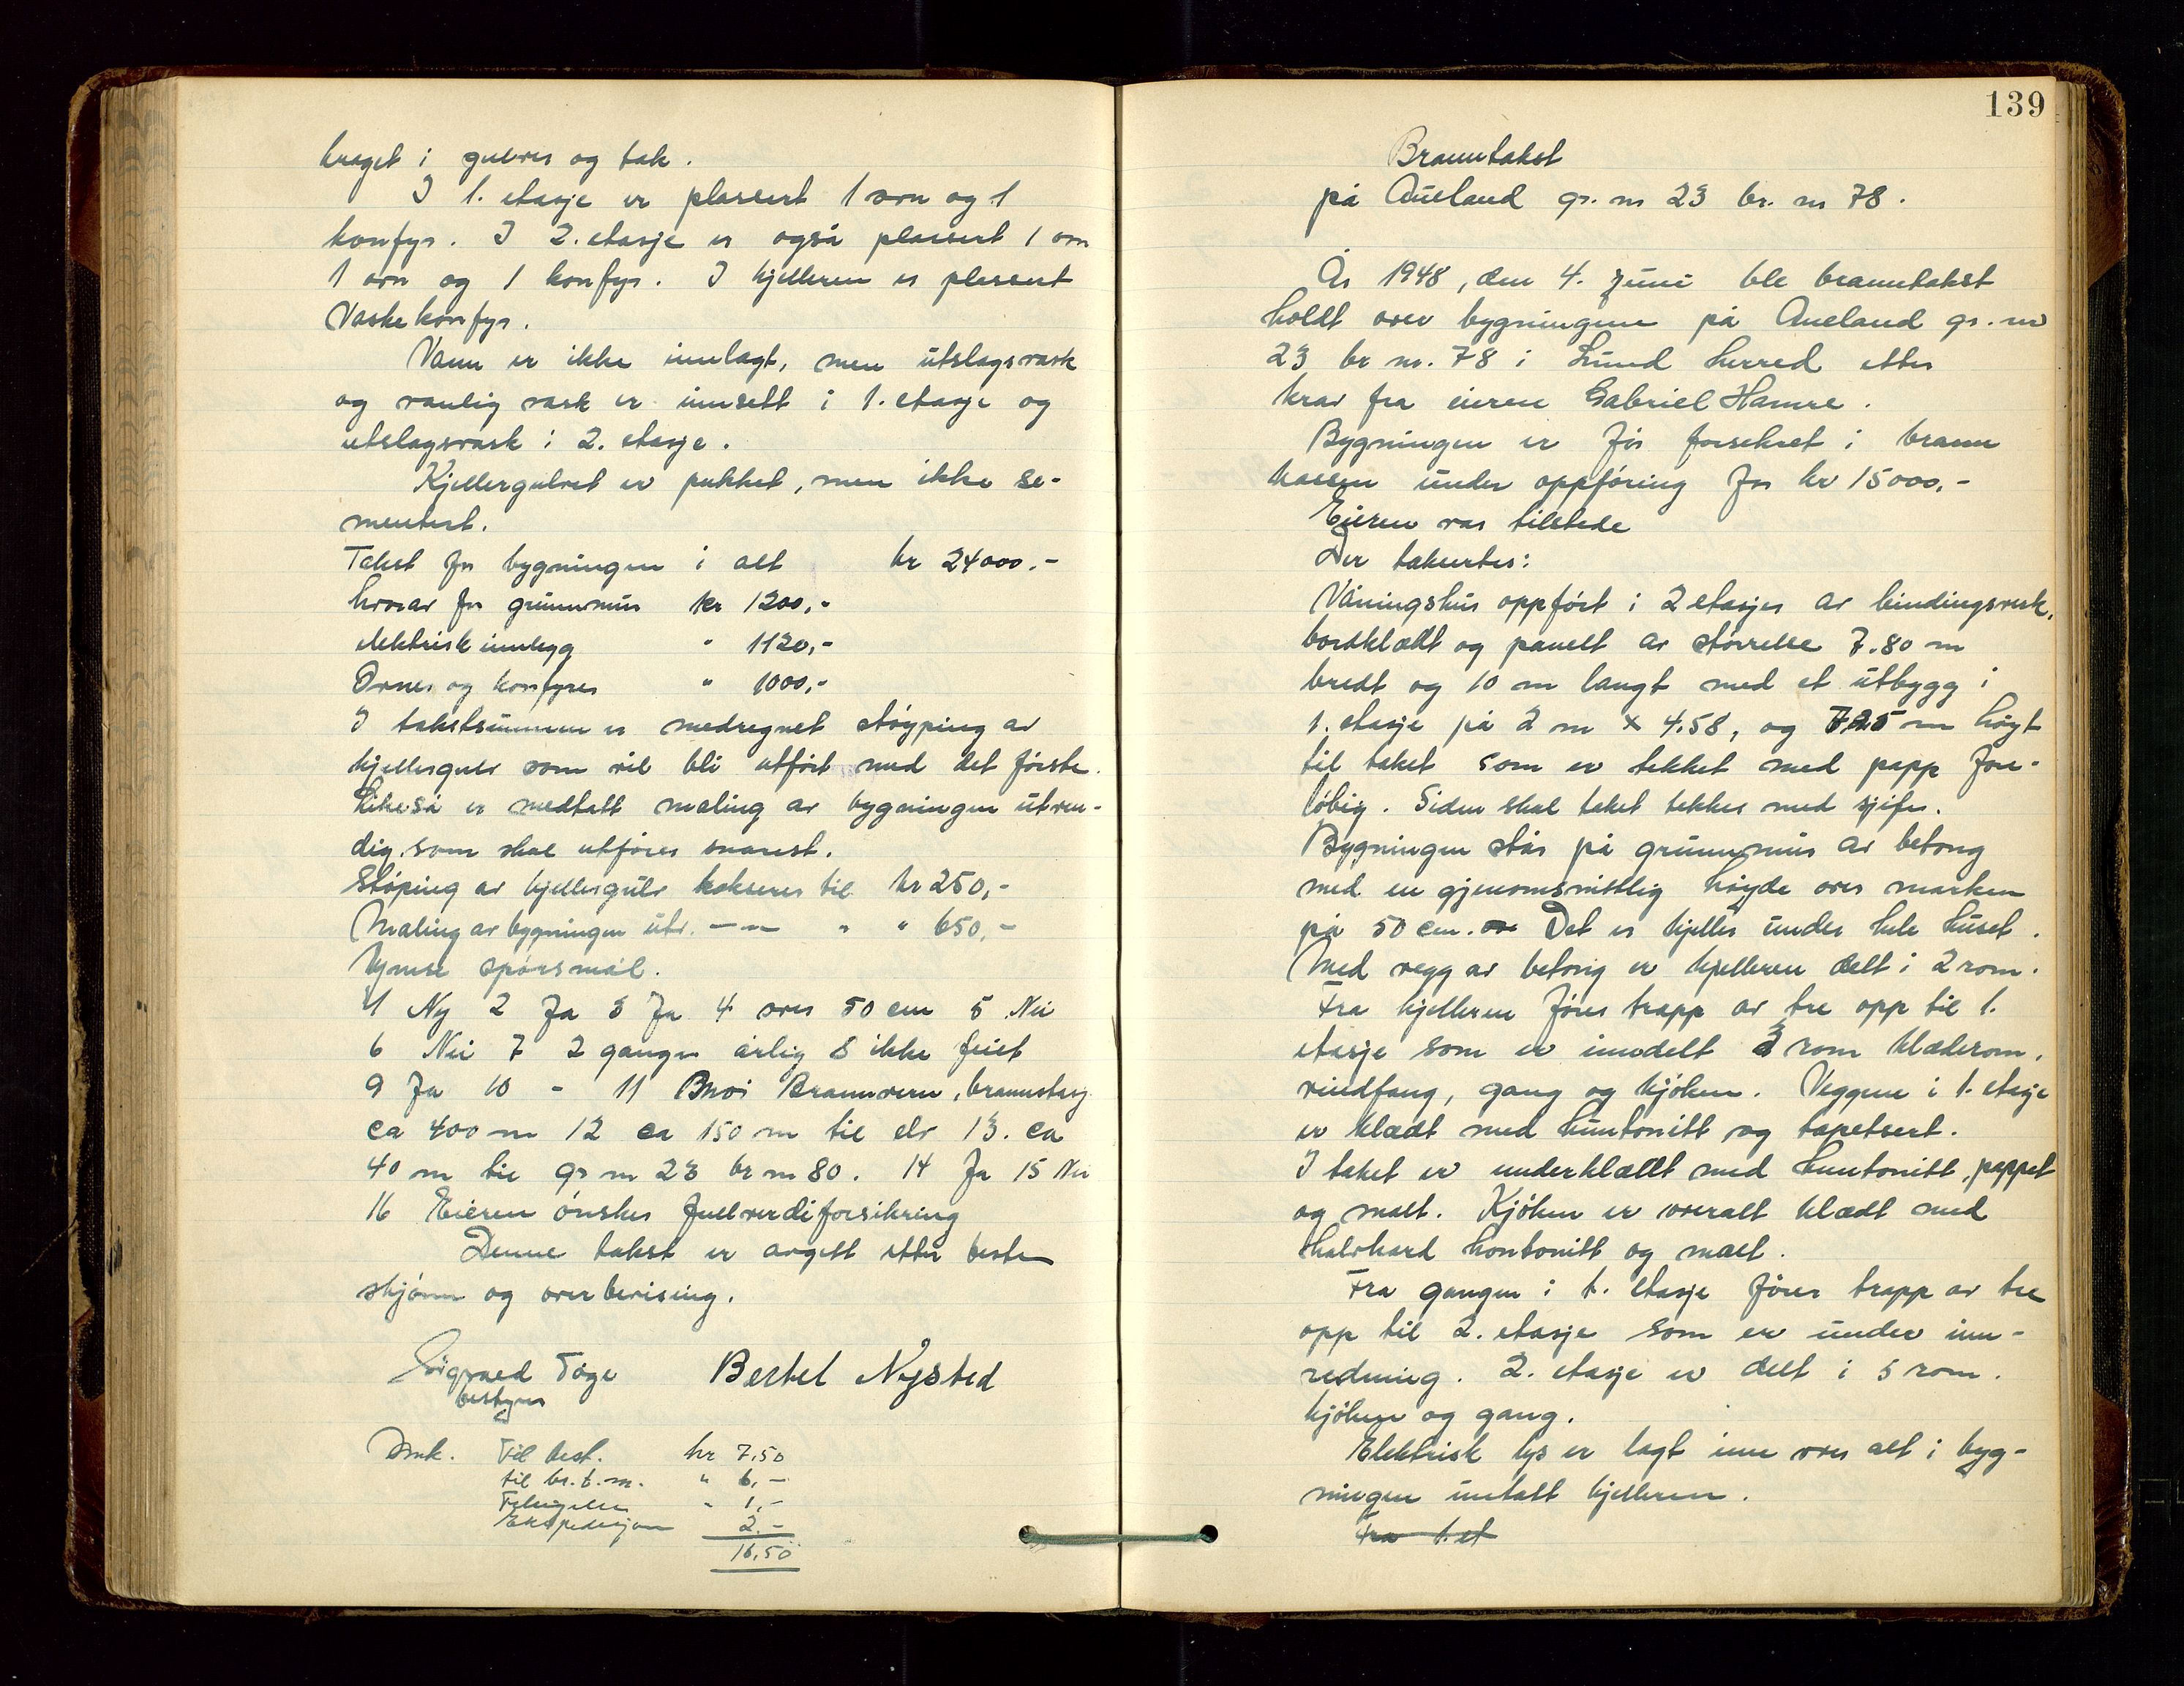 traget i gulver og tak.
I 1. etasje er plassert 1 ovn og 1
komfyr. I 2. etasje er også plassert 1 ovn
1 ovn og 1 komfyr. I kjelleren er plassert
Vaskekomfyr.
Vann er ikke innlagt, men utslagsvask
og vanlig vask er innsett i 1. etasje og
utslagsvask i 2. etasje.
Kjellergulvet er pukket, men ikke se-
mentert.
Takst for bygningen i alt kr 24000.-
hvorav for grunnmur kr 1200,-
elektrisk innlegg " 1120,-
Ovner og komfyrer " 1000,-
I takstsummen er medregnet støyping av
kjellergulv som vil bli utført med det første.
Likeså er medtatt maling av bygningen utven-
dig som skal utføres snarest.
Støping av kjellergulv takseres til kr 250,-
Maling av bygningen utv. — " — " " 650,-
Ymse spørsmål.
1 Ny 2 Ja 3 Ja 4 over 50 cm 5 Nei
6 Nei 7 2 ganger årlig 8 ikke feiet
9 Ja 10 - 11 Moi Brannvern, brannstasj
ca 400 m 12 ca 150 m til elv 13. ca
40 m til gr nr 23 br nr 80. 14 Ja 15 Nei
16 Eieren ønsker fullverdiforsikring
Denne takst er avgitt etter beste
skjønn og overbevising.
Sigvaed Tøge Bertel Nysted
bestyrer
Omk. Til best. kr 7,50
til br.t.m. " 6,-
" 1,-
Ekspedisjon 2.-
16,50
139
Branntakst
på Aueland gr. nr 23 br. nr 78.
År 1948, den 4. juni ble branntakst
holdt over bygningene på Aueland gr. nr
23 br nr. 78 i Lund herred etter
krav fra eieren Gabriel Hamre.
Bygningen er før forsekret i brann
kassen under oppføring for kr 15000,-
Eieren var tilstede
Der taksertes:
Våningshus oppført i 2 etasjer av bindingsverk,
bordklædt og panelt av størrelse 7.80 m
bredt og 10 m langt med et utbygg i
1. etasje på 2 m x 4,58, og 7,25 m høyt
til taket som er tekket med papp fore-
løbig. Siden skal taket tekkes med sjifer.
Bygningen står på grunnmur av betong
med en gjenomsnittlig høyde over marken
på 50 cm. ov Det er kjeller under hele huset.
Med vegg av betong er kjelleren delt i 2 rom.
Fra kjelleren fører trapp av tre opp til 1.
etasje som er inndelt 3 rom klæderom,
vindfang, gang og kjøken. Veggene i 1. etasje
er klædt med huntonitt og tapetsert.
I taket er underklædt med huntonitt, pappet
og malt. Kjøken er overalt klædt med
halvhard hontonitt og malt.
Fra gangen i 1. etasje fører trapp av tre
opp til 2. etasje som er under inn-
redning. 2. etasje er delt i 5 rom.
kjøken og gang.
Elektrisk lys er lagt inn over alt i byg-
ningen untatt kjelleren.
Fra 1. et